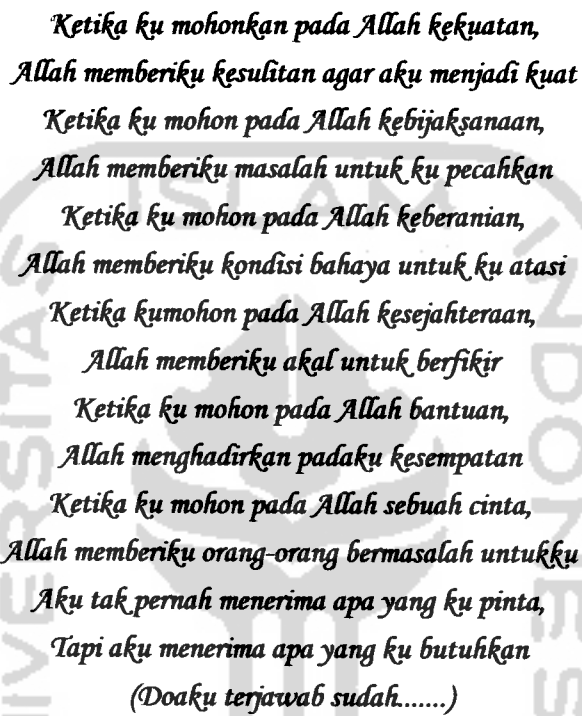 Ketika ku mohonkan pada Allah kekuatan,
Allah memberiku kesulitan agar aku menjadi kuat
Ketika ku mohon pada Allah kebijaksanaan,
Allah memberiku masalah untuk ku pecahkan
Ketika ku mohon pada Allah keberanian,
Allah memberiku kondisi bahaya untuk ku atasi
Ketika kumohon pada Allah kesejahteraan,
Allah memberiku akal untuk berfikir
Ketika ku mohon pada Allah bantuan,
Allah menghadirkan padaku kesempatan
Ketika ku mohon pada Allah sebuah cinta,
Allah memberiku orang-orang bermasalah untukku
Aku tak pernah menerima apa yang ku pinta,
Tapi aku menerima apa yang ku butuhkan
(Doaku terjawab sudah.......)
ISLAM